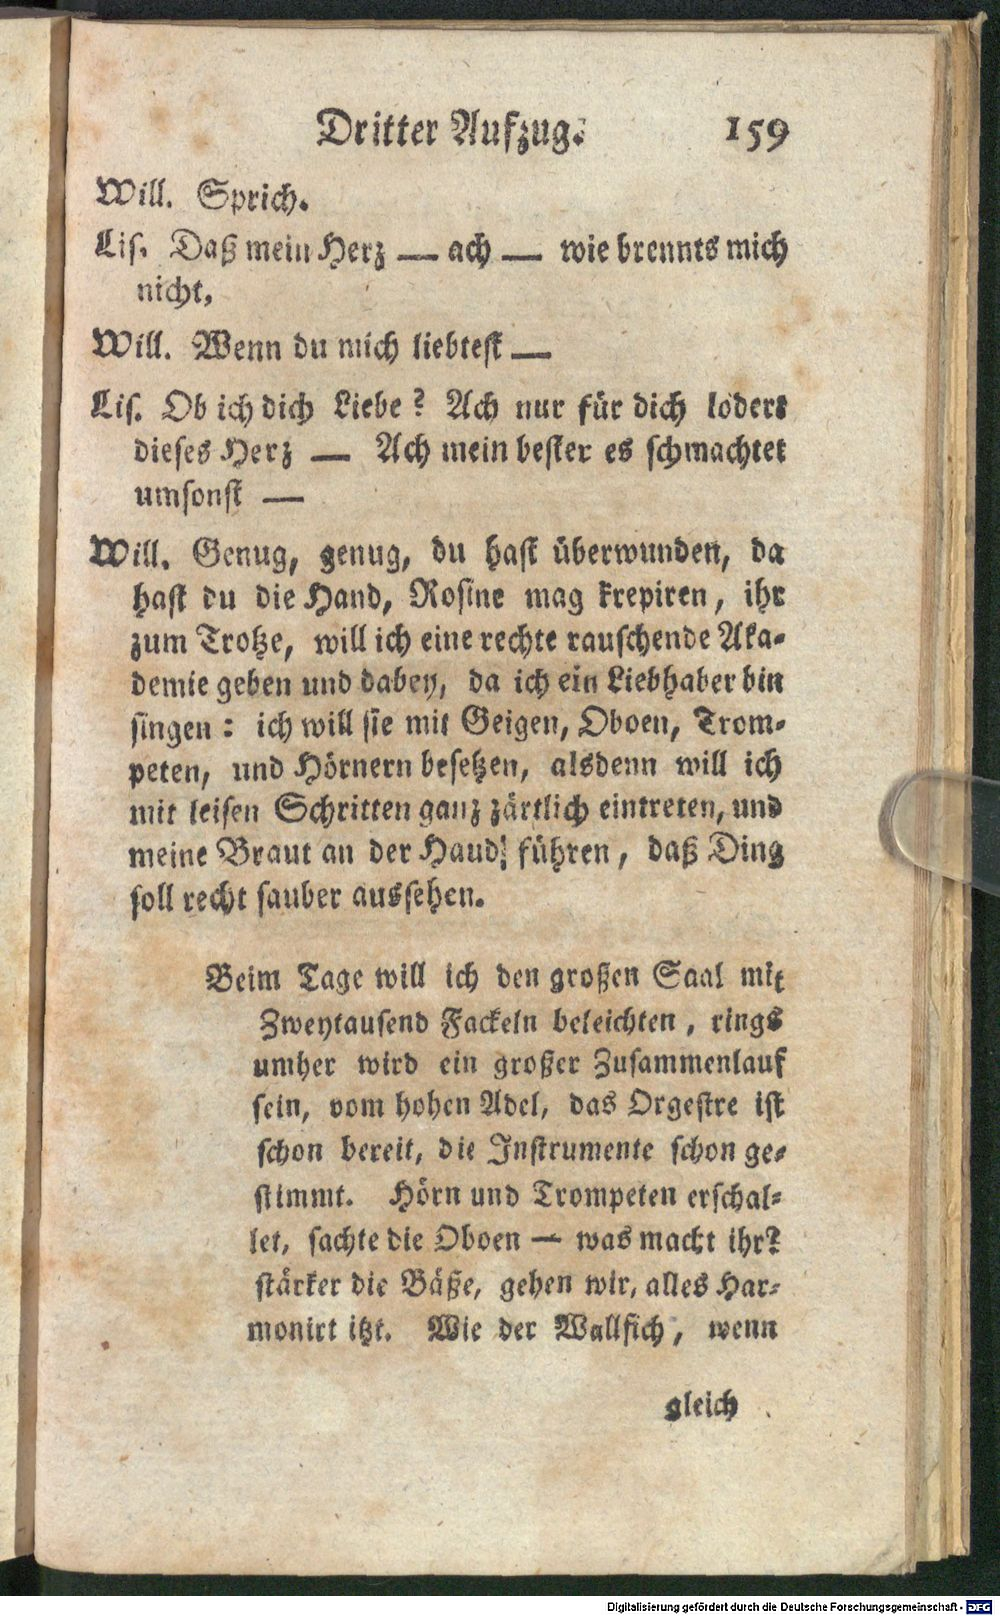 Dritter Aufzug. 159
Will. Sprich.
Lis. Daß mein Herz — ach — wie brennts mich
nicht,
Will. Wenn du mich liebtest —
Lis. Ob ich dich Liebe? Ach nur für dich lodert
dieses Herz — Ach mein bester es schmachtet
umsonst —
Will. Genug, genug, du hast überwunden, da
hast du die Hand, Rosine mag krepiren, ihr
zum Trotze, will ich eine rechte rauschende Aka-
demie geben und dabey, da ich ein Liebhaber bin
singen: ich will sie mit Geigen, Oboen, Trom-
peten, und Hörnern besetzen, alsdenn will ich
mit leisen Schritten ganz zärtlich eintreten, und
meine Braut an der Haud führen, daß Ding
soll recht sauber aussehen.
Beim Tage will ich den großen Saal mit
Zweytausend Fackeln beleichten, rings
umher wird ein großer Zusammenlauf
sein, vom hohen Adel, das Orgestre ist
schon bereit, die Instrumente schon ge-
stimmt. Hörn und Trompeten erschal-
let, sachte die Oboen — was macht ihr?
stärker die Bäße, gehen wir, alles Har-
monirt itzt. Wie der Wallfich, wenn
gleich
Digitalisierung gefördert durch die Deutsche Forschungsgemeinschaft - DFG